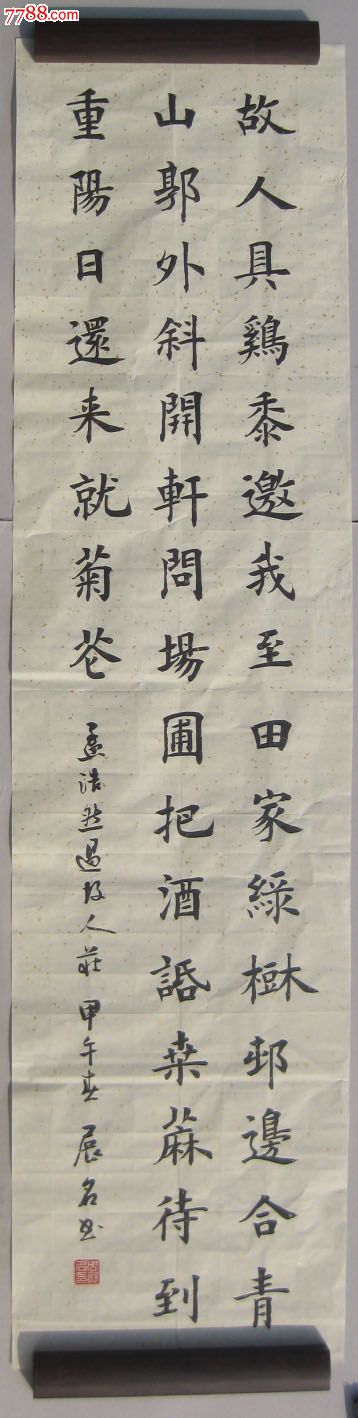 7788.com
故人具鷄黍邀我至田家綠樹邨邊合青
山郭外斜開軒問場圃把酒話桒蔴待到
重陽日還来就菊花
孟浩然過故人莊 甲午春 展名书